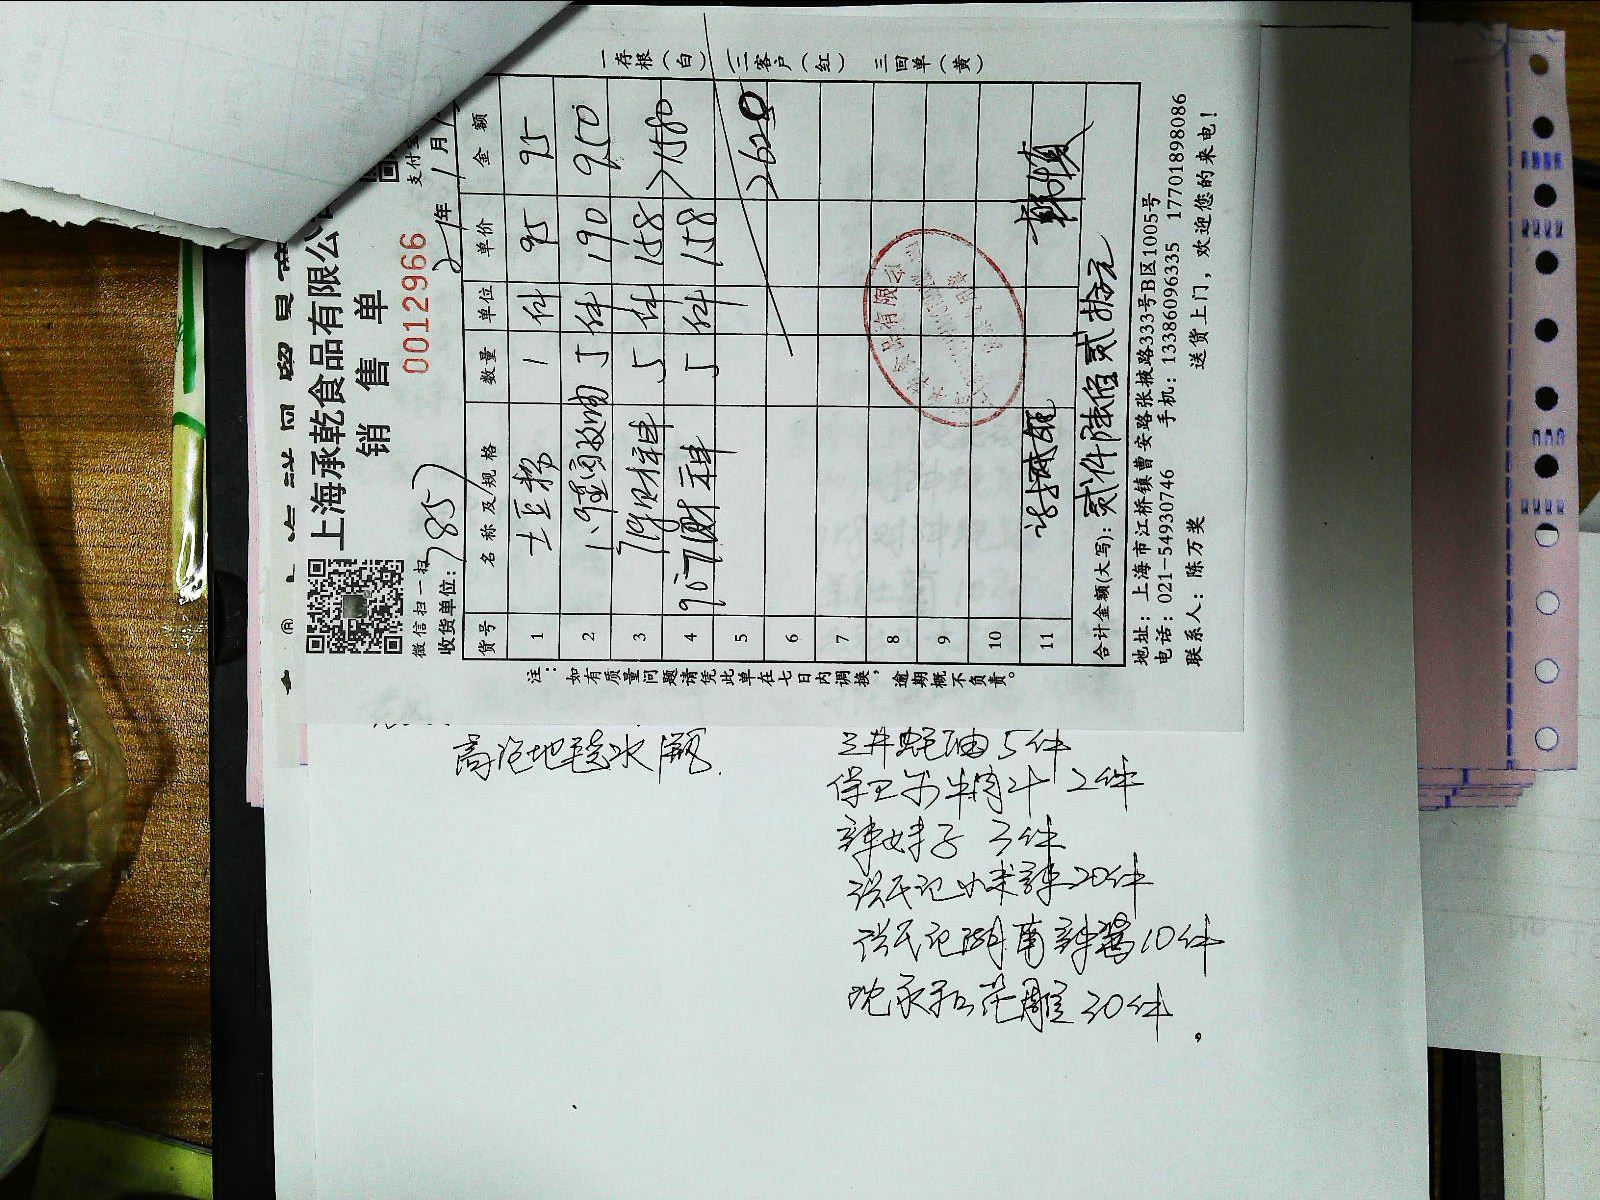 上海承乾食品有限公
销 售 单
0012966
微信扫一扫
支付宝
收货单位: 7857
21年1月1
货号 名称及/规格 数量 单位 单价 金额
1 土豆粉 1 件 95 95
2 5 件 190 950
3 5 件 158
4 5 件 158 1580
5
6 2620
7
8
9
10
11
合计金额(大写): 贰仟陆佰贰拾元
地址: 上海市江桥镇曹安路张掖路333号B区1005号
电话: 021-54930746 手机: 13386096335 17701898086
联系人: 陈万奖 送货上门, 欢迎您的来电!
一存根(白) 二客户(红) 三回单(黄)
注: 如有质量问题请凭此单在七日内调换, 逾期概不负责。
高泡地毯水
三井蚝油5件
保卫尔牛肉汁 2件
辣妹子 3件
洪氏记小米辣20件
洪氏记湖南辣酱10件
沈永和花雕30件